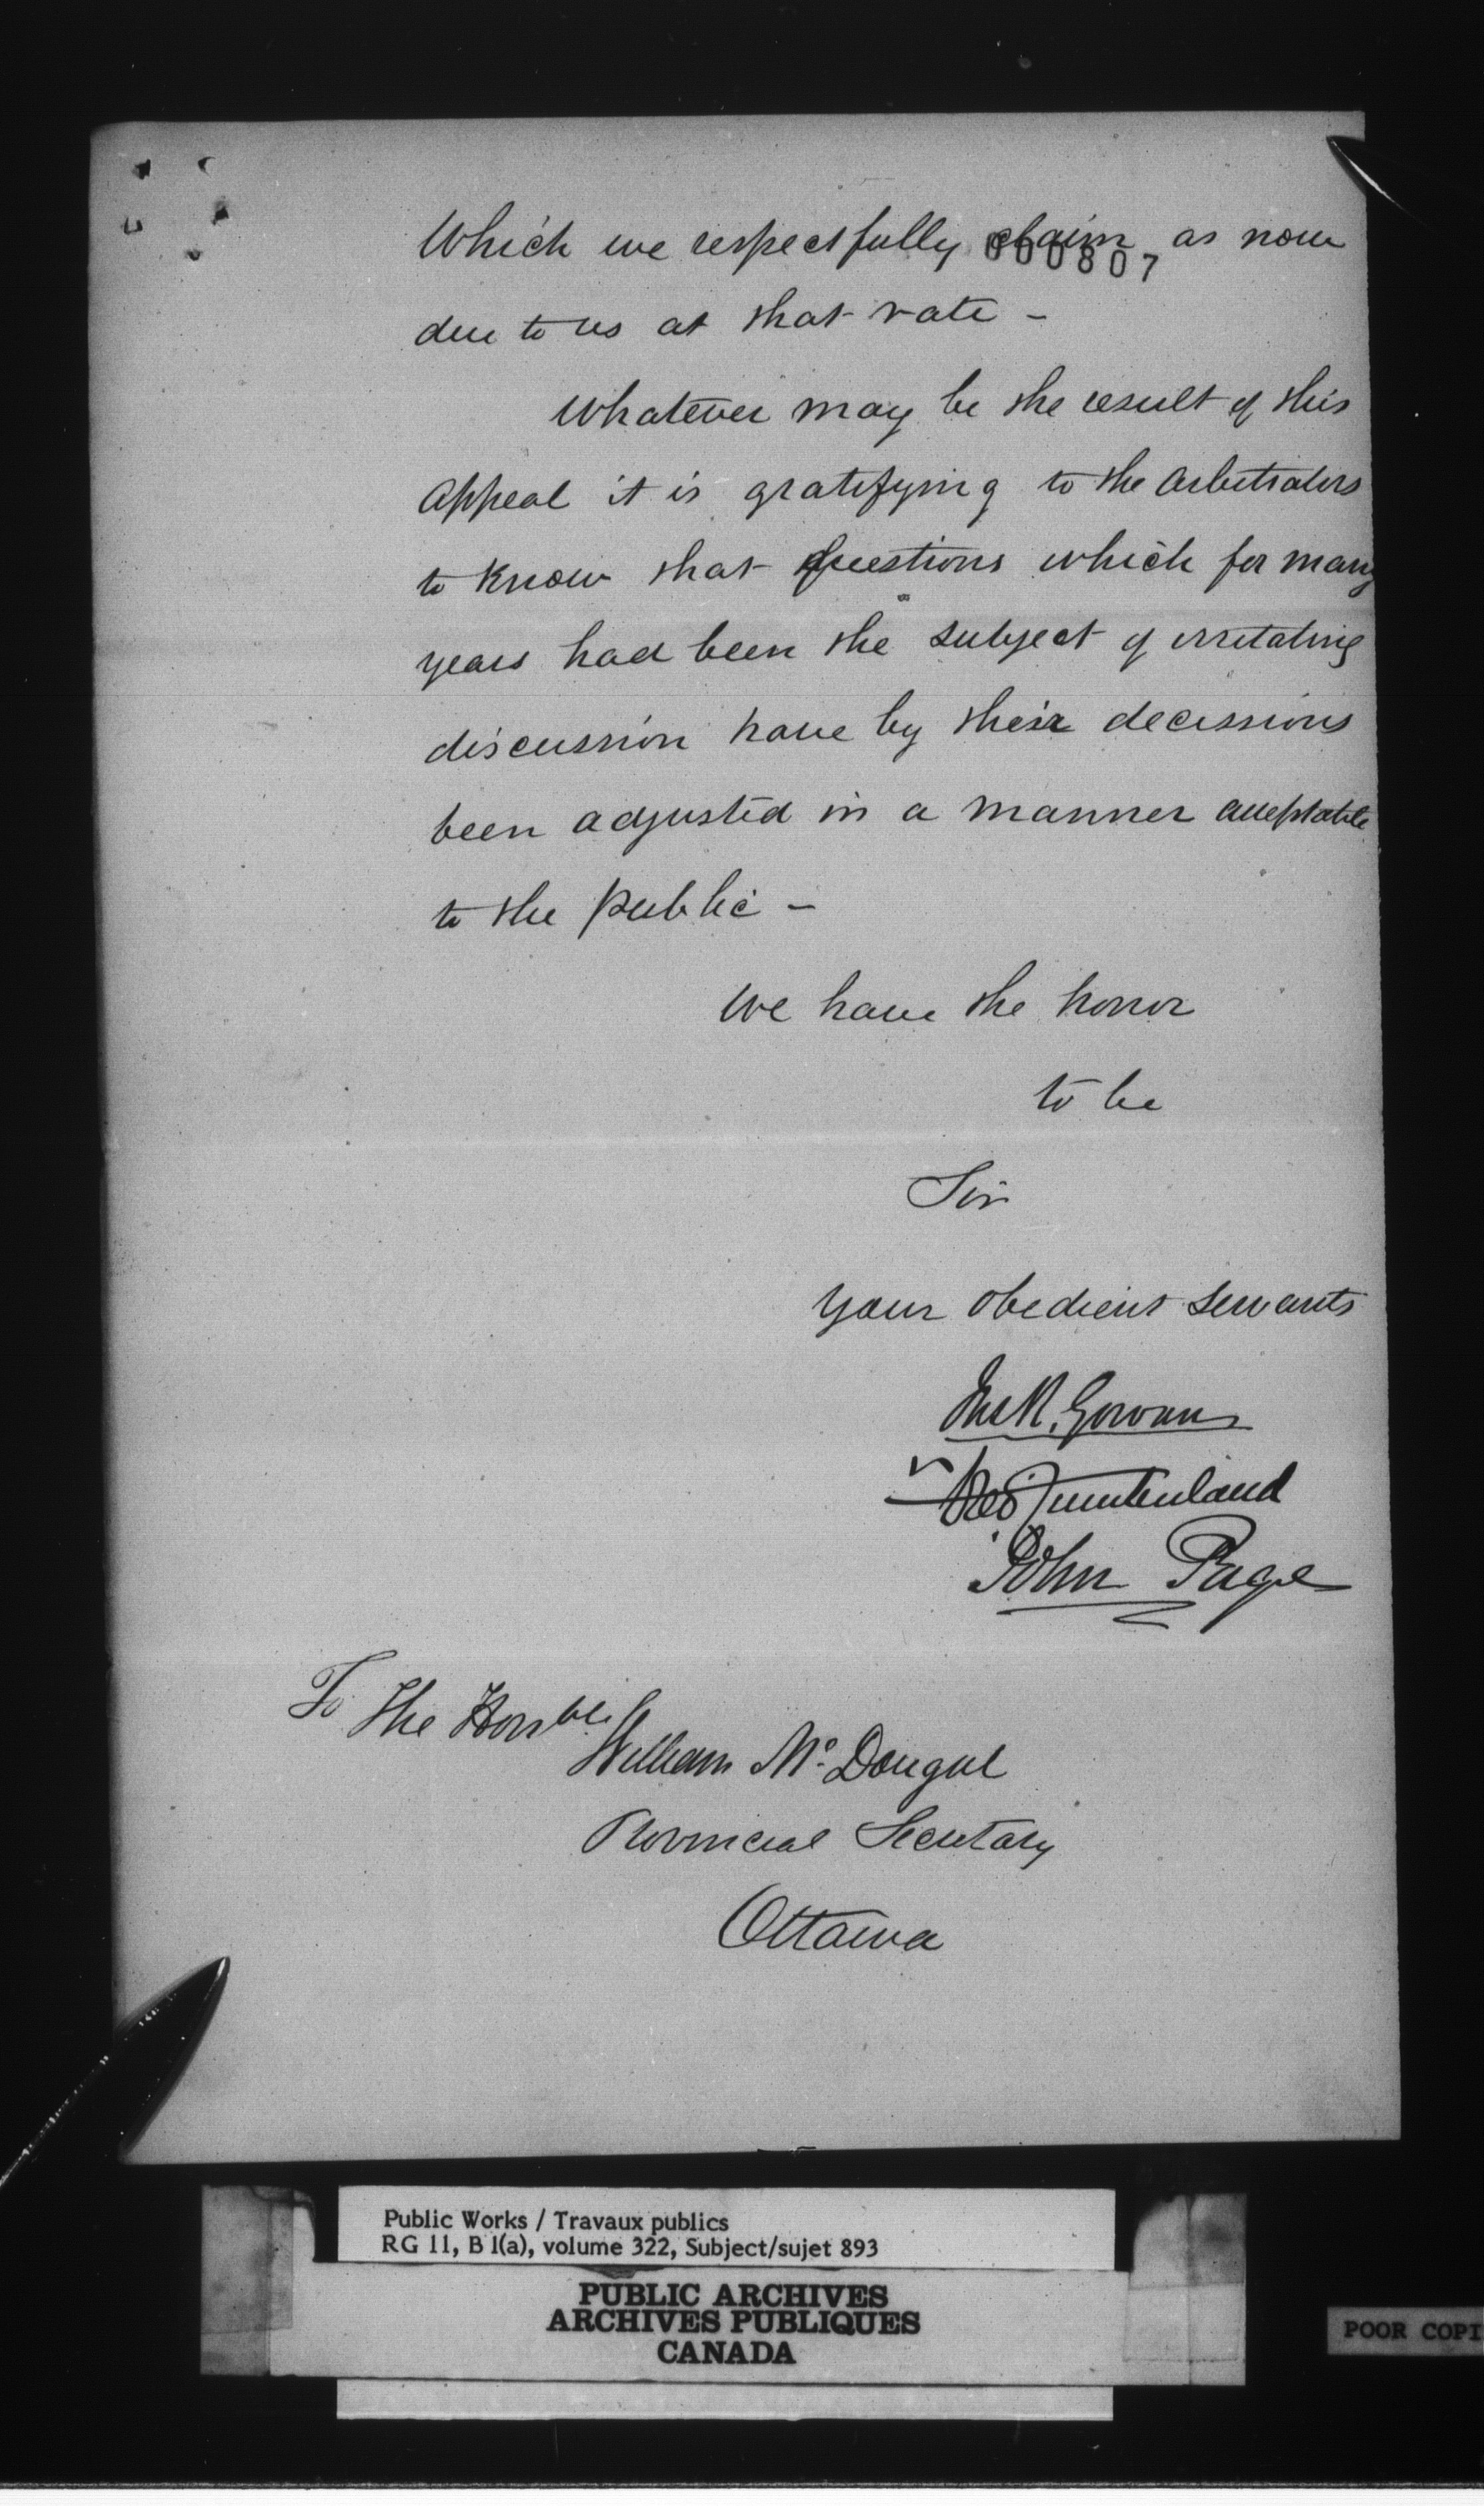 Which we respectfully claim as now
000807
due to us at that rate -
Whatever may be the result of this
appeal it is gratifying to the Arbitrators
to know that questions which for many
years had been the subject of irritating
discussion have by their decissions
been adjusted in a manner acceptable
to the public -
We have the honor
to be
Sir
Your obedient servants
Jas R. Gowan
Fred Cumberland
John Page
To The Honble
William Mc Dougal
Provincial Secretary
Ottawa
Public Works / Travaux publics
RG 11, B 1(a), volume 322, Subject/sujet 893
PUBLIC ARCHIVES
ARCHIVES PUBLIQUES
CANADA
POOR COPI